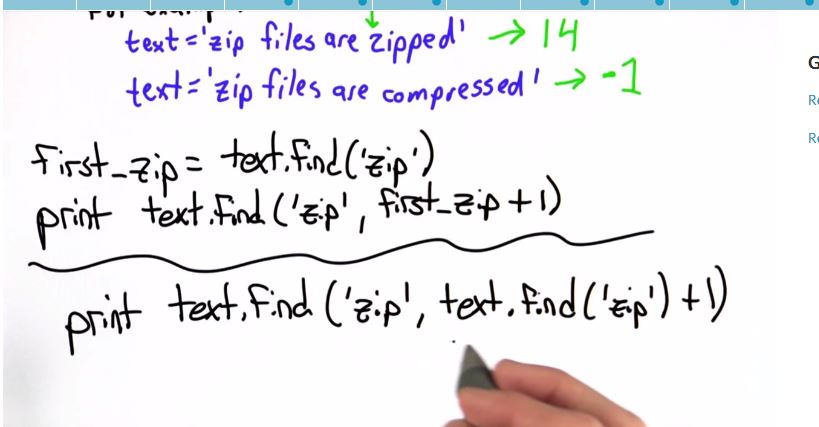 text='zip files are zipped' → 14
text='zip files are compressed' → -1
first_zip = text.find('zip')
print text.find('zip', first_zip+1)
print text.find('zip', text.find('zip')+1)